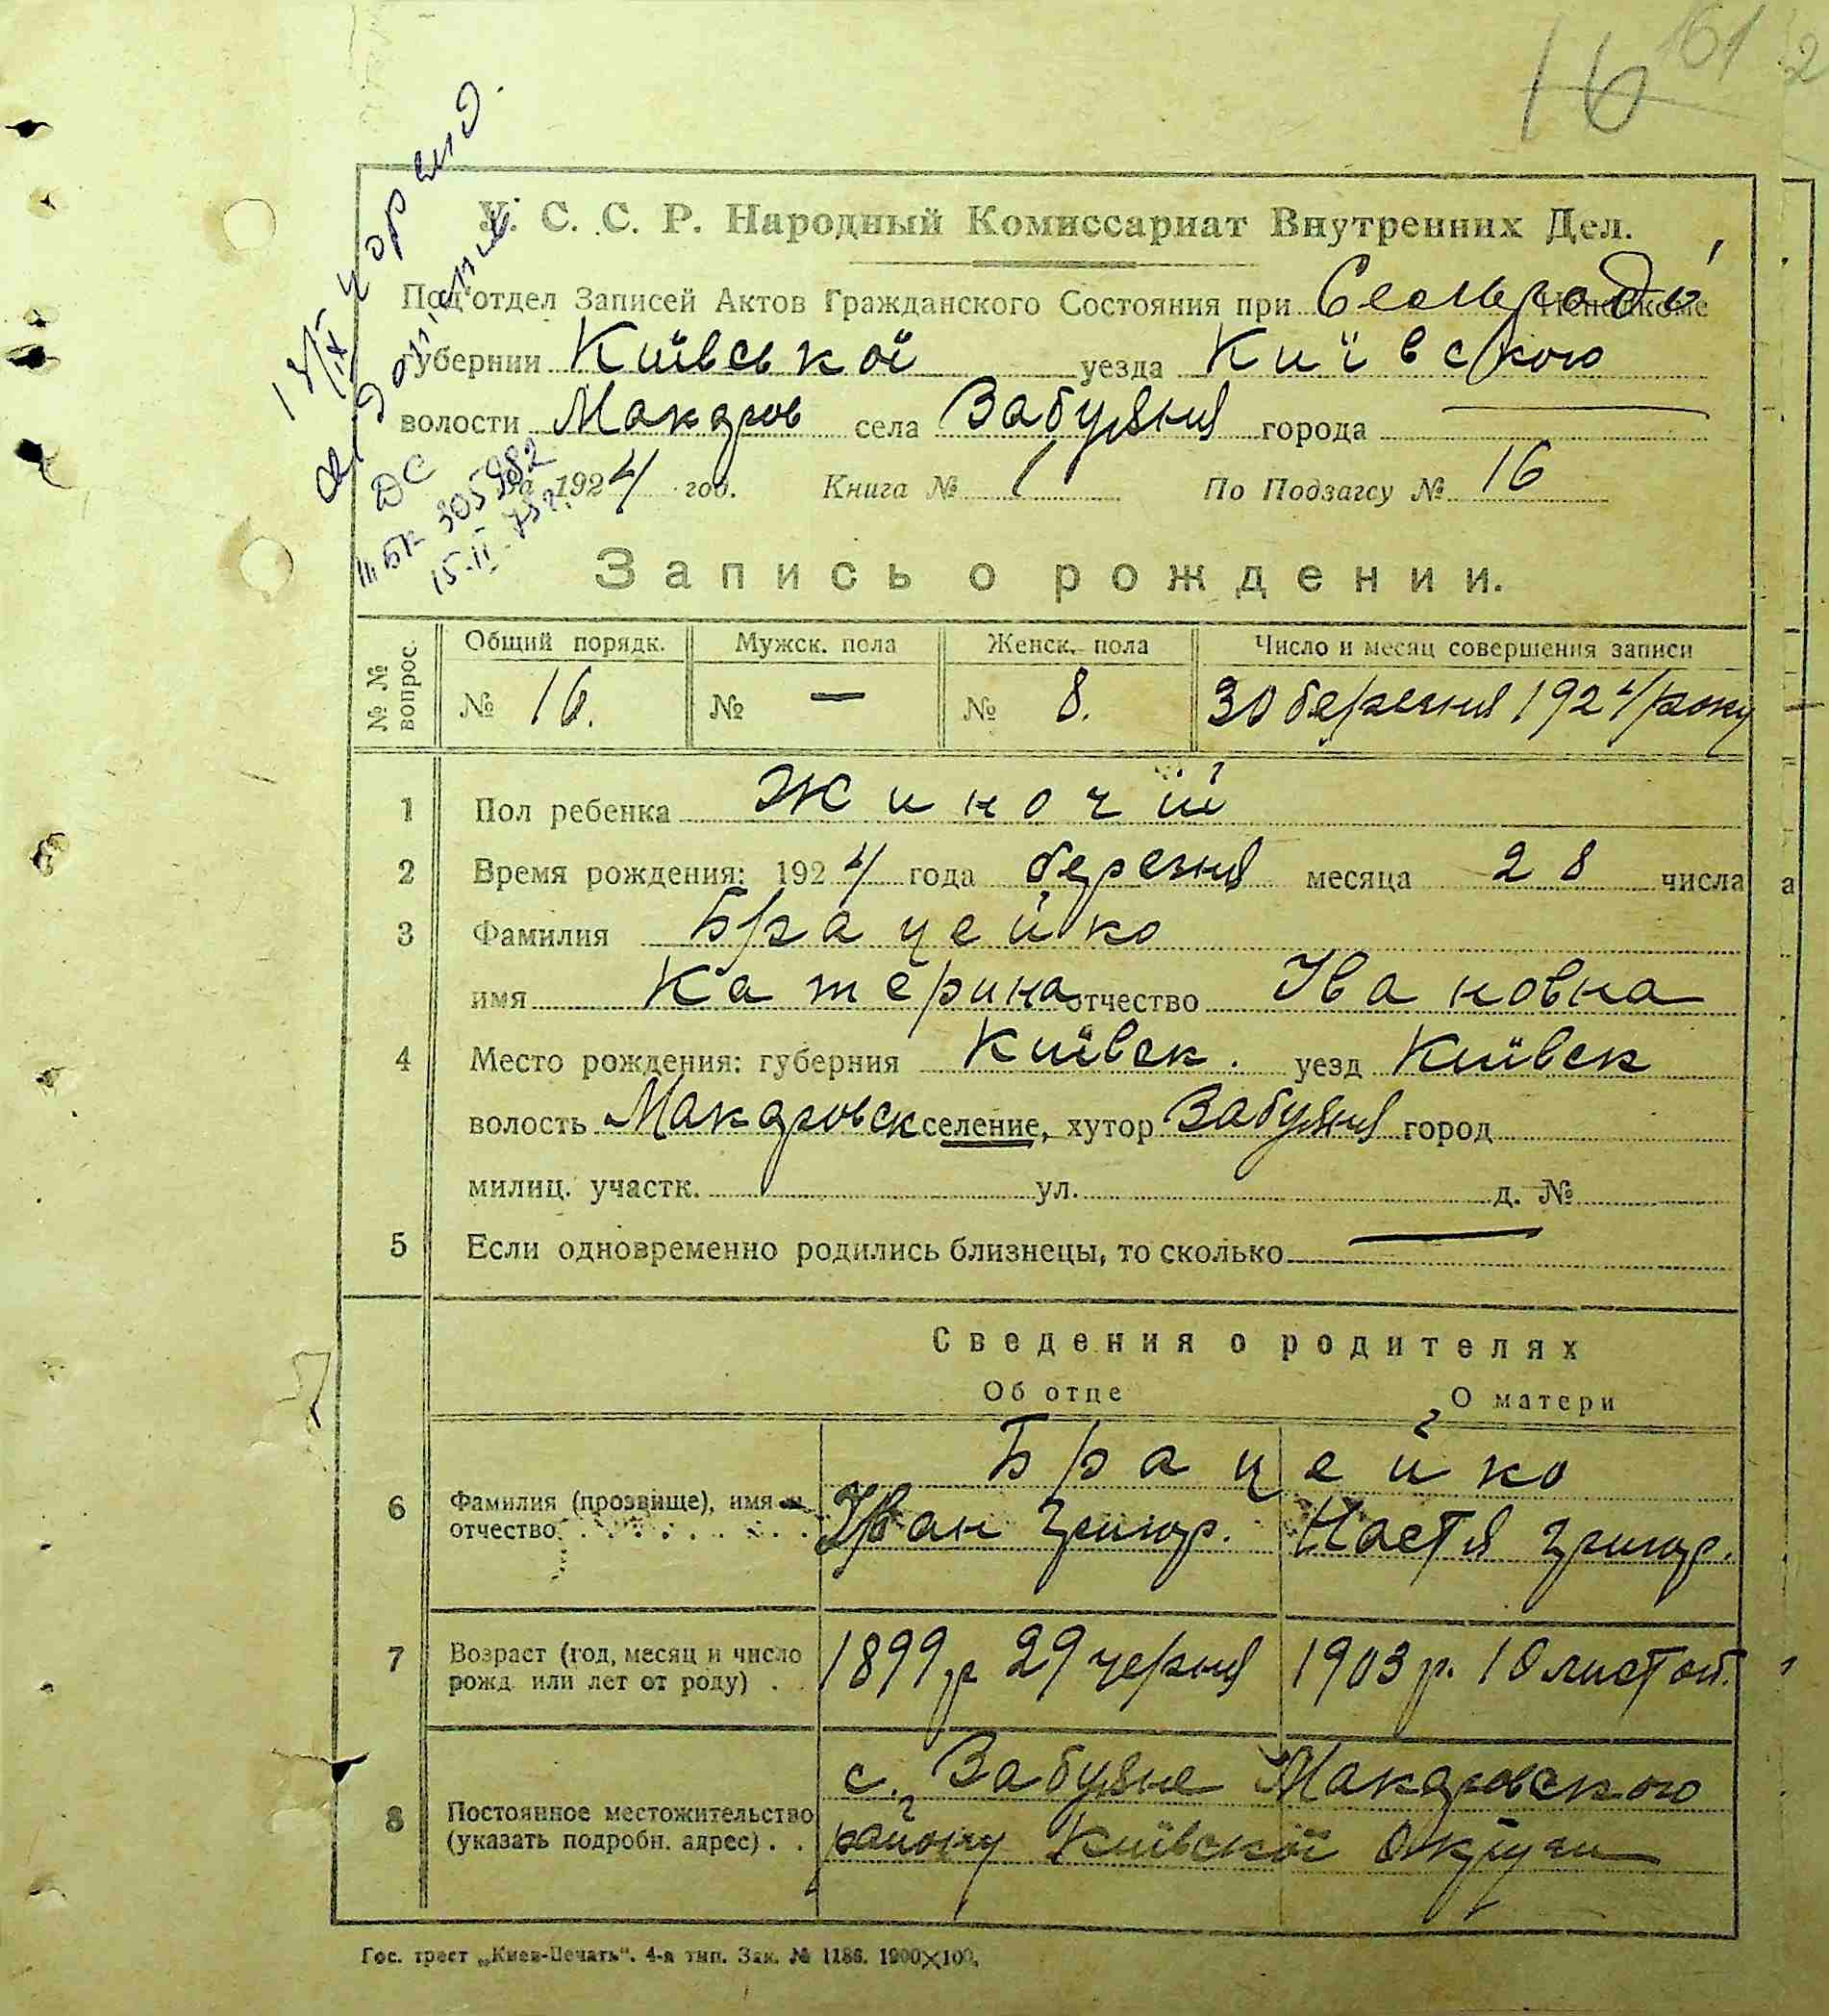 161
2
16
У. С. С. Р. Народный Комиссариат Внутренних Дел.
Под'отдел Записей Актов Гражданского Состояния при
губернии Київської уезда Київского
волости Макаров села Забуяння города —
За 1924 год. Книга № 1 По Подзагсу № 16
ДС
III БК 305982
Запись о рождении.
№ № вопрос. Общий порядк. Мужск. пола Женск. пола Число и месяц совершения записи
№ 16. № — № 8. 30 березня 1924 року
1 Пол ребенка Жиночій
2 Время рождения: 1924 года березня месяца 28 числа
3 Фамилия Брацейко
имя Катерина отчество Ивановна
4 Место рождения: губерния Київск. уезд Київск
волость Макаровск селение, хутор Забуяння город
милиц. участк. ул. д. №
5 Если одновременно родились близнецы, то сколько —
Сведения о родителях
Об отце О матери
Брацейко
6 Фамилия (прозвище), имя и отчество Иван Григор. Настя Григор.
7 Возраст (год, месяц и число рожд. или лет от роду) 1899 р 29 червня 1903 р. 10 листоп.
с. Забуяне Макаровского
8 Постоянное местожительство (указать подробн. адрес) району Київскої Округи
Гос. трест „Киев-Печать". 4-я тип. Зак. № 1186. 1900×100.